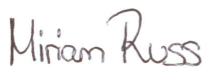 Miriam Russ